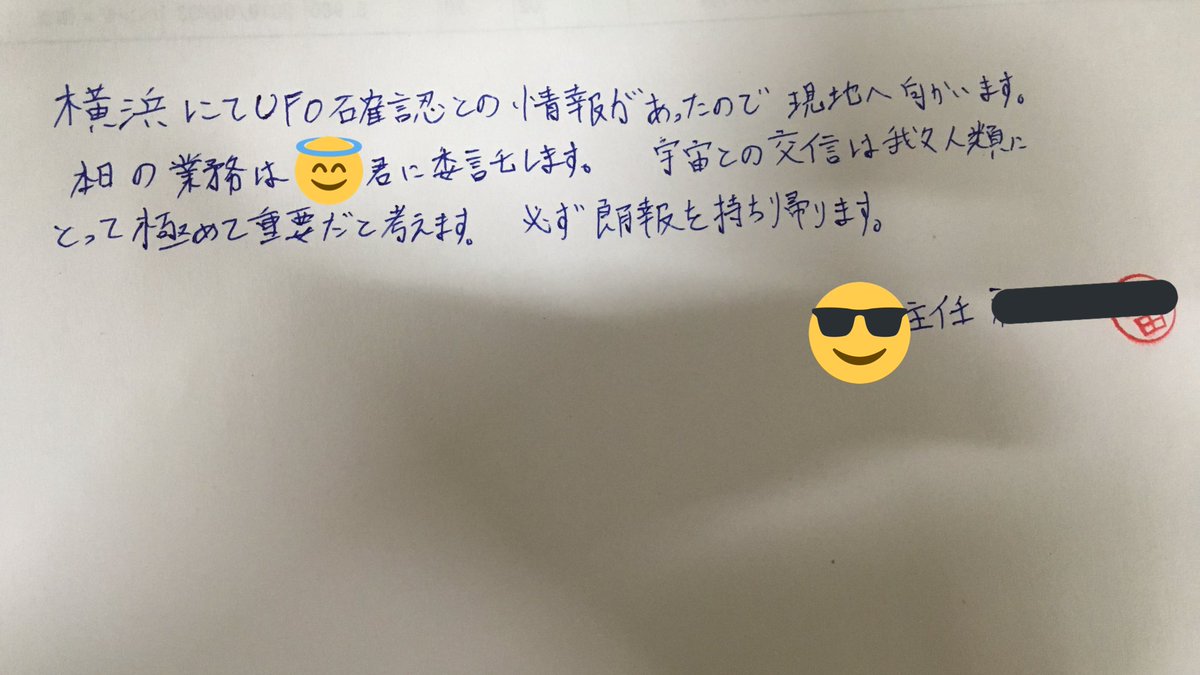 横浜にてUFO確認との情報があったので現地へ向かいます。
本日の業務は😇君に委託します。 宇宙との交信は我々人類に
とって極めて重要だと考えます。 必ず朗報を持ち帰ります。
😎主任